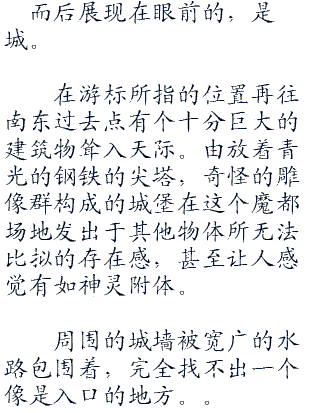 而后展现在眼前的，是
城。
在游标所指的位置再往
南东过去点有个十分巨大的
建筑物耸入天际。由放着青
光的钢铁的尖塔，奇怪的雕
像群构成的城堡在这个魔都
场地发出于其他物体所无法
比拟的存在感，甚至让人感
觉有如神灵附体。
周围的城墙被宽广的水
路包围着，完全找不出一个
像是入口的地方。。